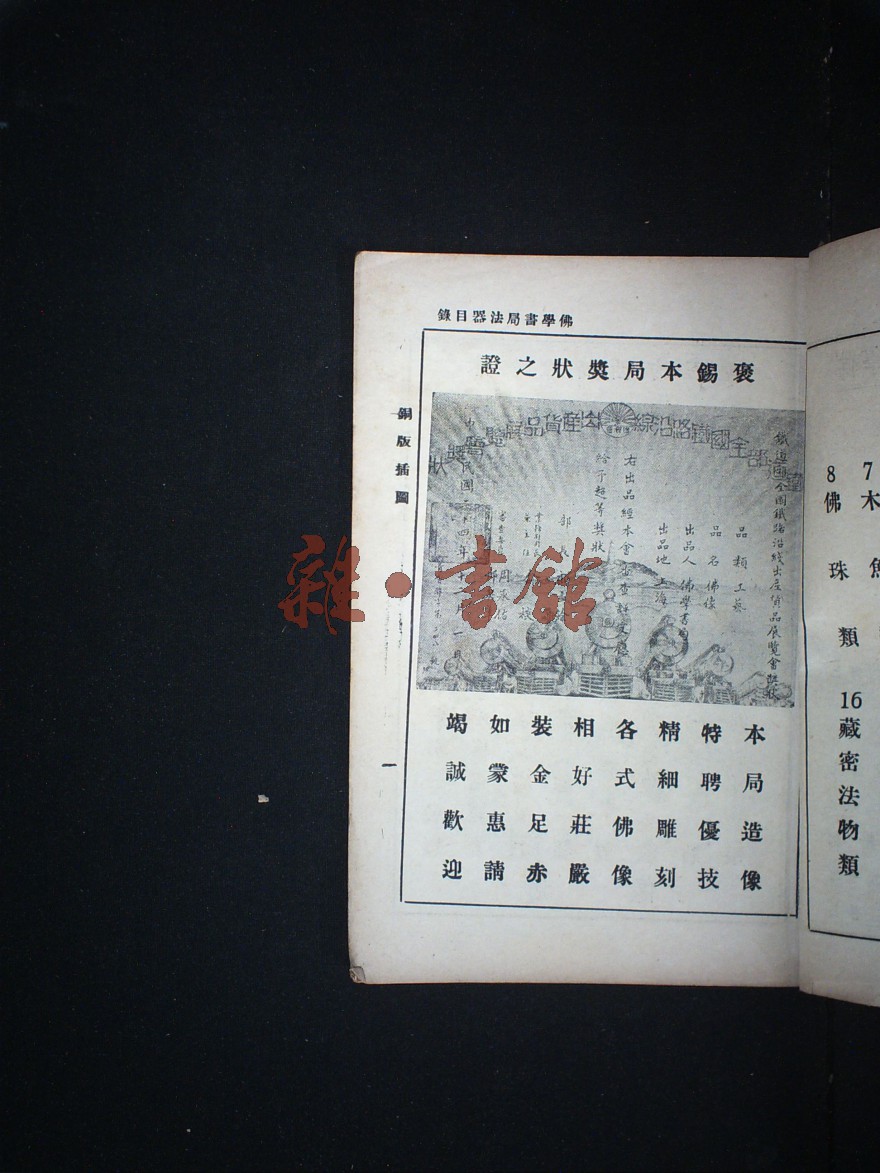 佛學書局法器目錄
褒錫本局獎狀之證
鐵道部全國鐵路沿綫出產貨品展覽會獎狀
鐵道部全國鐵路沿綫出產貨品展覽會獎狀
品類 工藝
品名 佛像
出品人 佛學書局
出品地 上海
右出品經本會審查
給予超等獎狀
部長
中華民國二十四年十
本局造像
特聘優技
精細雕刻
各式佛像
相好莊嚴
裝金足赤
如蒙惠請
竭誠歡迎
銅版插圖
一
7 木魚
8 佛珠類
16 藏密法物類
雜·書館